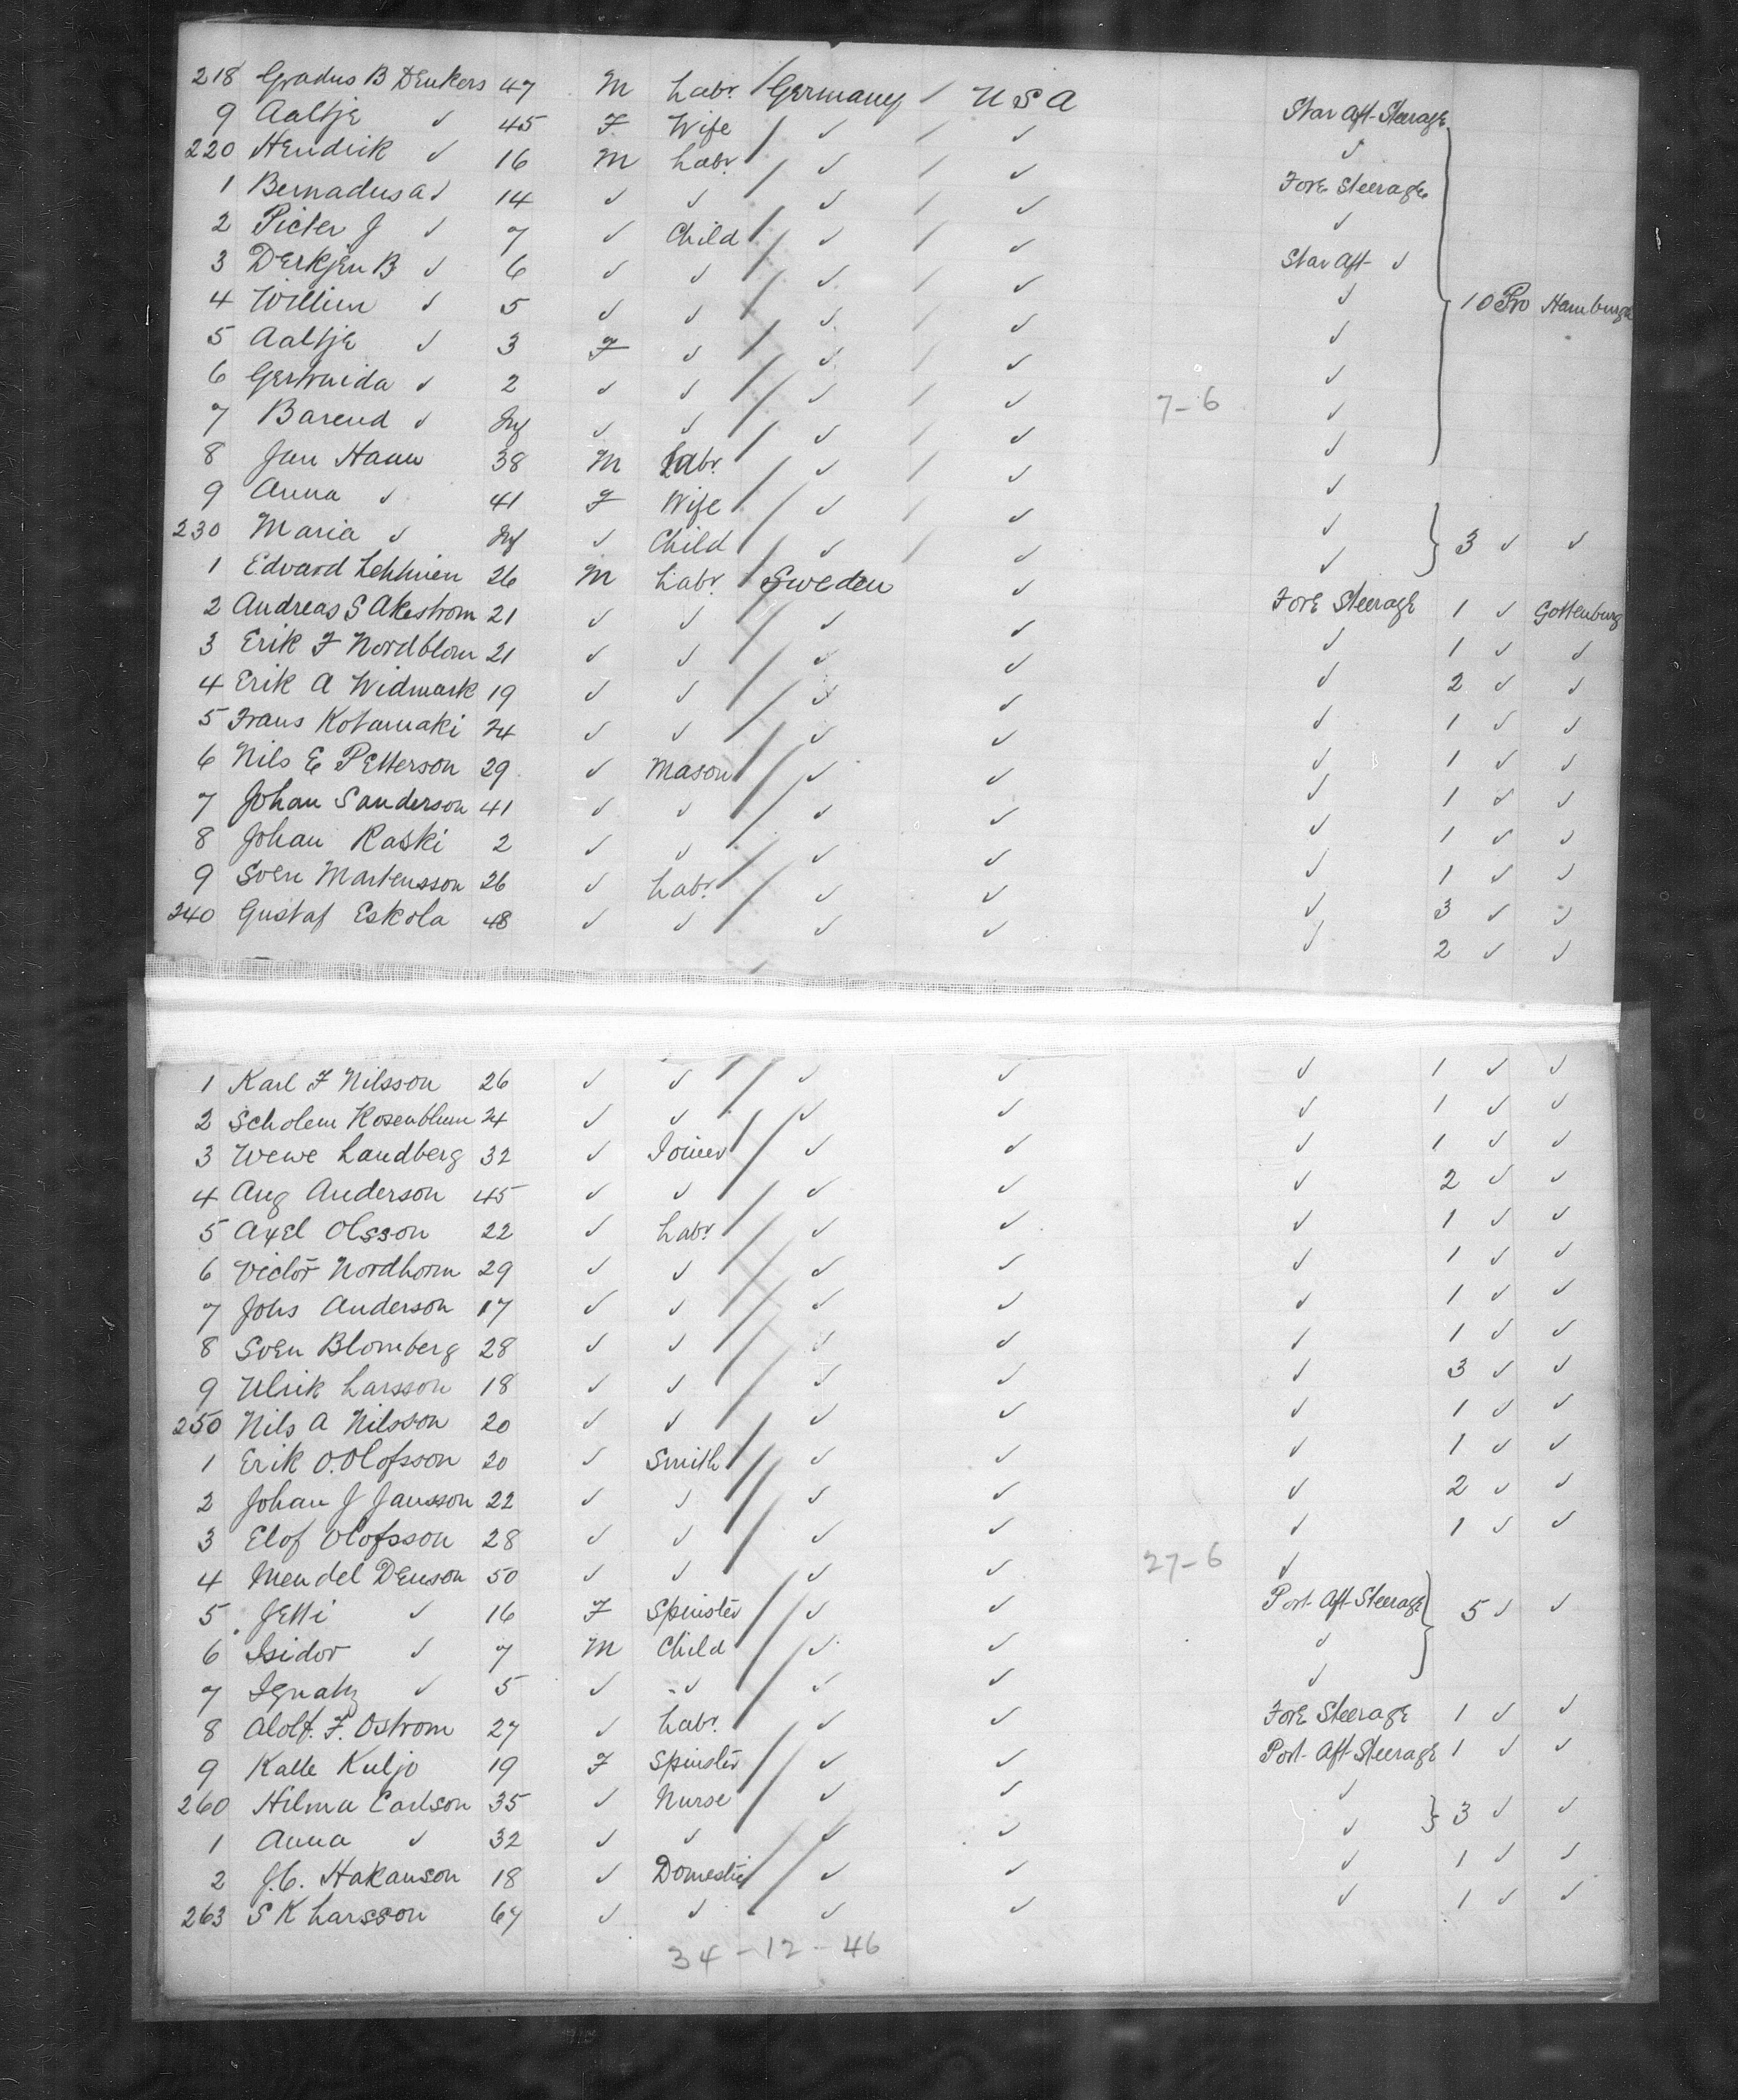 218 Gradus B Denkers 47 M Labr. / Germany / U S A Star Aft-Steerage
9 Aaltje ✓ 45 F Wife / ✓ / ✓ ✓
220 Hendrik ✓ 16 M Labr. / ✓ / ✓ Fore Steerage
1 Bernadus A ✓ 14 ✓ ✓ / ✓ / ✓ ✓
2 Pieter J ✓ 7 ✓ Child / ✓ / ✓ Star Aft ✓
3 Derkjen B ✓ 6 ✓ ✓ / ✓ / ✓ ✓ 10 Pro Hamburgh
4 Willim ✓ 5 ✓ ✓ / ✓ / ✓ ✓
5 Aaltje ✓ 3 F ✓ / ✓ / ✓ ✓
6 Gertruida ✓ 2 ✓ ✓ / ✓ / ✓ 7-6 ✓
7 Barend ✓ Inf ✓ ✓ / ✓ / ✓ ✓
8 Jan Haan 38 M Labr. / ✓ / ✓ ✓
9 Anna ✓ 41 F Wife / ✓ / ✓ ✓
230 Maria ✓ Inf ✓ Child / ✓ / ✓ ✓ 3 ✓ ✓
1 Edvard Lehtinen 26 M Labr. / Sweden ✓ Fore Steerage 1 ✓ Gottenburg
2 Andreas S Akestrom 21 ✓ ✓ / ✓ ✓ ✓ 1 ✓ ✓
3 Erik F Nordblom 21 ✓ ✓ / ✓ ✓ ✓ 2 ✓ ✓
4 Erik A Widmark 19 ✓ ✓ / ✓ ✓ ✓ 1 ✓ ✓
5 Frans Kotamaki 24 ✓ ✓ / ✓ ✓ ✓ 1 ✓ ✓
6 Nils E Petterson 29 ✓ Mason / ✓ ✓ ✓ 1 ✓ ✓
7 Johan Sanderson 41 ✓ ✓ / ✓ ✓ ✓ 1 ✓ ✓
8 Johan Raski 2 ✓ ✓ / ✓ ✓ ✓ 1 ✓ ✓
9 Sven Martensson 26 ✓ Labr. / ✓ ✓ ✓ 3 ✓ ✓
240 Gustaf Eskola 48 ✓ ✓ / ✓ ✓ ✓ 2 ✓ ✓
1 Karl F Nilsson 26 ✓ ✓ / ✓ ✓ ✓ 1 ✓ ✓
2 Scholem Rosenblum 24 ✓ ✓ / ✓ ✓ ✓ 1 ✓ ✓
3 Wewe Landberg 32 ✓ Joiner / ✓ ✓ ✓ 1 ✓ ✓
4 Aug Anderson 45 ✓ ✓ / ✓ ✓ ✓ 2 ✓ ✓
5 Axel Olsson 22 ✓ Labr / ✓ ✓ ✓ 1 ✓ ✓
6 Victor Nordhorm 29 ✓ ✓ / ✓ ✓ ✓ 1 ✓ ✓
7 Johs Anderson 17 ✓ ✓ / ✓ ✓ ✓ 1 ✓ ✓
8 Sven Blomberg 28 ✓ ✓ / ✓ ✓ ✓ 1 ✓ ✓
9 Ulrik Larsson 18 ✓ ✓ / ✓ ✓ ✓ 3 ✓ ✓
250 Nils A Nilsson 20 ✓ ✓ / ✓ ✓ ✓ 1 ✓ ✓
1 Erik O. Olofsson 20 ✓ Smith / ✓ ✓ ✓ 1 ✓ ✓
2 Johan J Jansson 22 ✓ ✓ / ✓ ✓ ✓ 2 ✓ ✓
3 Elof Olofsson 28 ✓ ✓ / ✓ ✓ ✓ 1 ✓ ✓
4 Mendel Denson 50 ✓ ✓ / ✓ ✓ 27-6 ✓
5 Jetti ✓ 16 F Spinster / ✓ ✓ Port-Aft-Steerage 5 ✓ ✓
6 Isidor ✓ 7 M Child / ✓ ✓ ✓
7 Ignatz ✓ 5 ✓ ✓ / ✓ ✓ ✓
8 Adolf. F. Ostrom 27 ✓ Labr. / ✓ ✓ Fore Steerage 1 ✓ ✓
9 Kalle Kuljo 19 F Spinster / ✓ ✓ Port-Aft-Steerage 1 ✓ ✓
260 Hilma Carlson 35 ✓ Nurse / ✓ ✓ ✓
1 Anna ✓ 32 ✓ ✓ / ✓ ✓ ✓ 3 ✓ ✓
2 J.C. Hakanson 18 ✓ Domestic / ✓ ✓ ✓ 1 ✓ ✓
263 S K Larsson 67 ✓ ✓ ✓ ✓ ✓ 1 ✓ ✓
34-12-46